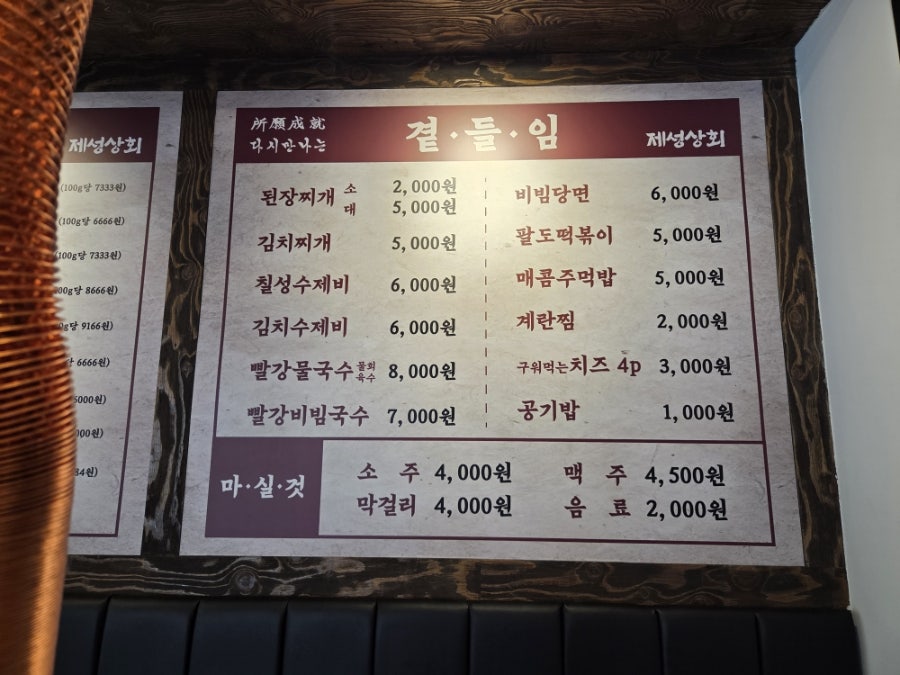 제성상회
(100g당 7333원)
(100g당 6666원)
(100g당 7333원)
00g당 8666원)
0g당 9166원)
당 6666원)
000원)
000원)
34원)
所願成就
다시만나는
곁·들·임
제성상회
된장찌개 소 2,000원
대 5,000원
김치찌개 5,000원
칠성수제비 6,000원
김치수제비 6,000원
빨강물국수 물회육수 8,000원
빨강비빔국수 7,000원
비빔당면 6,000원
팔도떡볶이 5,000원
매콤주먹밥 5,000원
계란찜 2,000원
구워먹는치즈 4p 3,000원
공기밥 1,000원
마·실·것
소 주 4,000원
맥 주 4,500원
막걸리 4,000원
음 료 2,000원